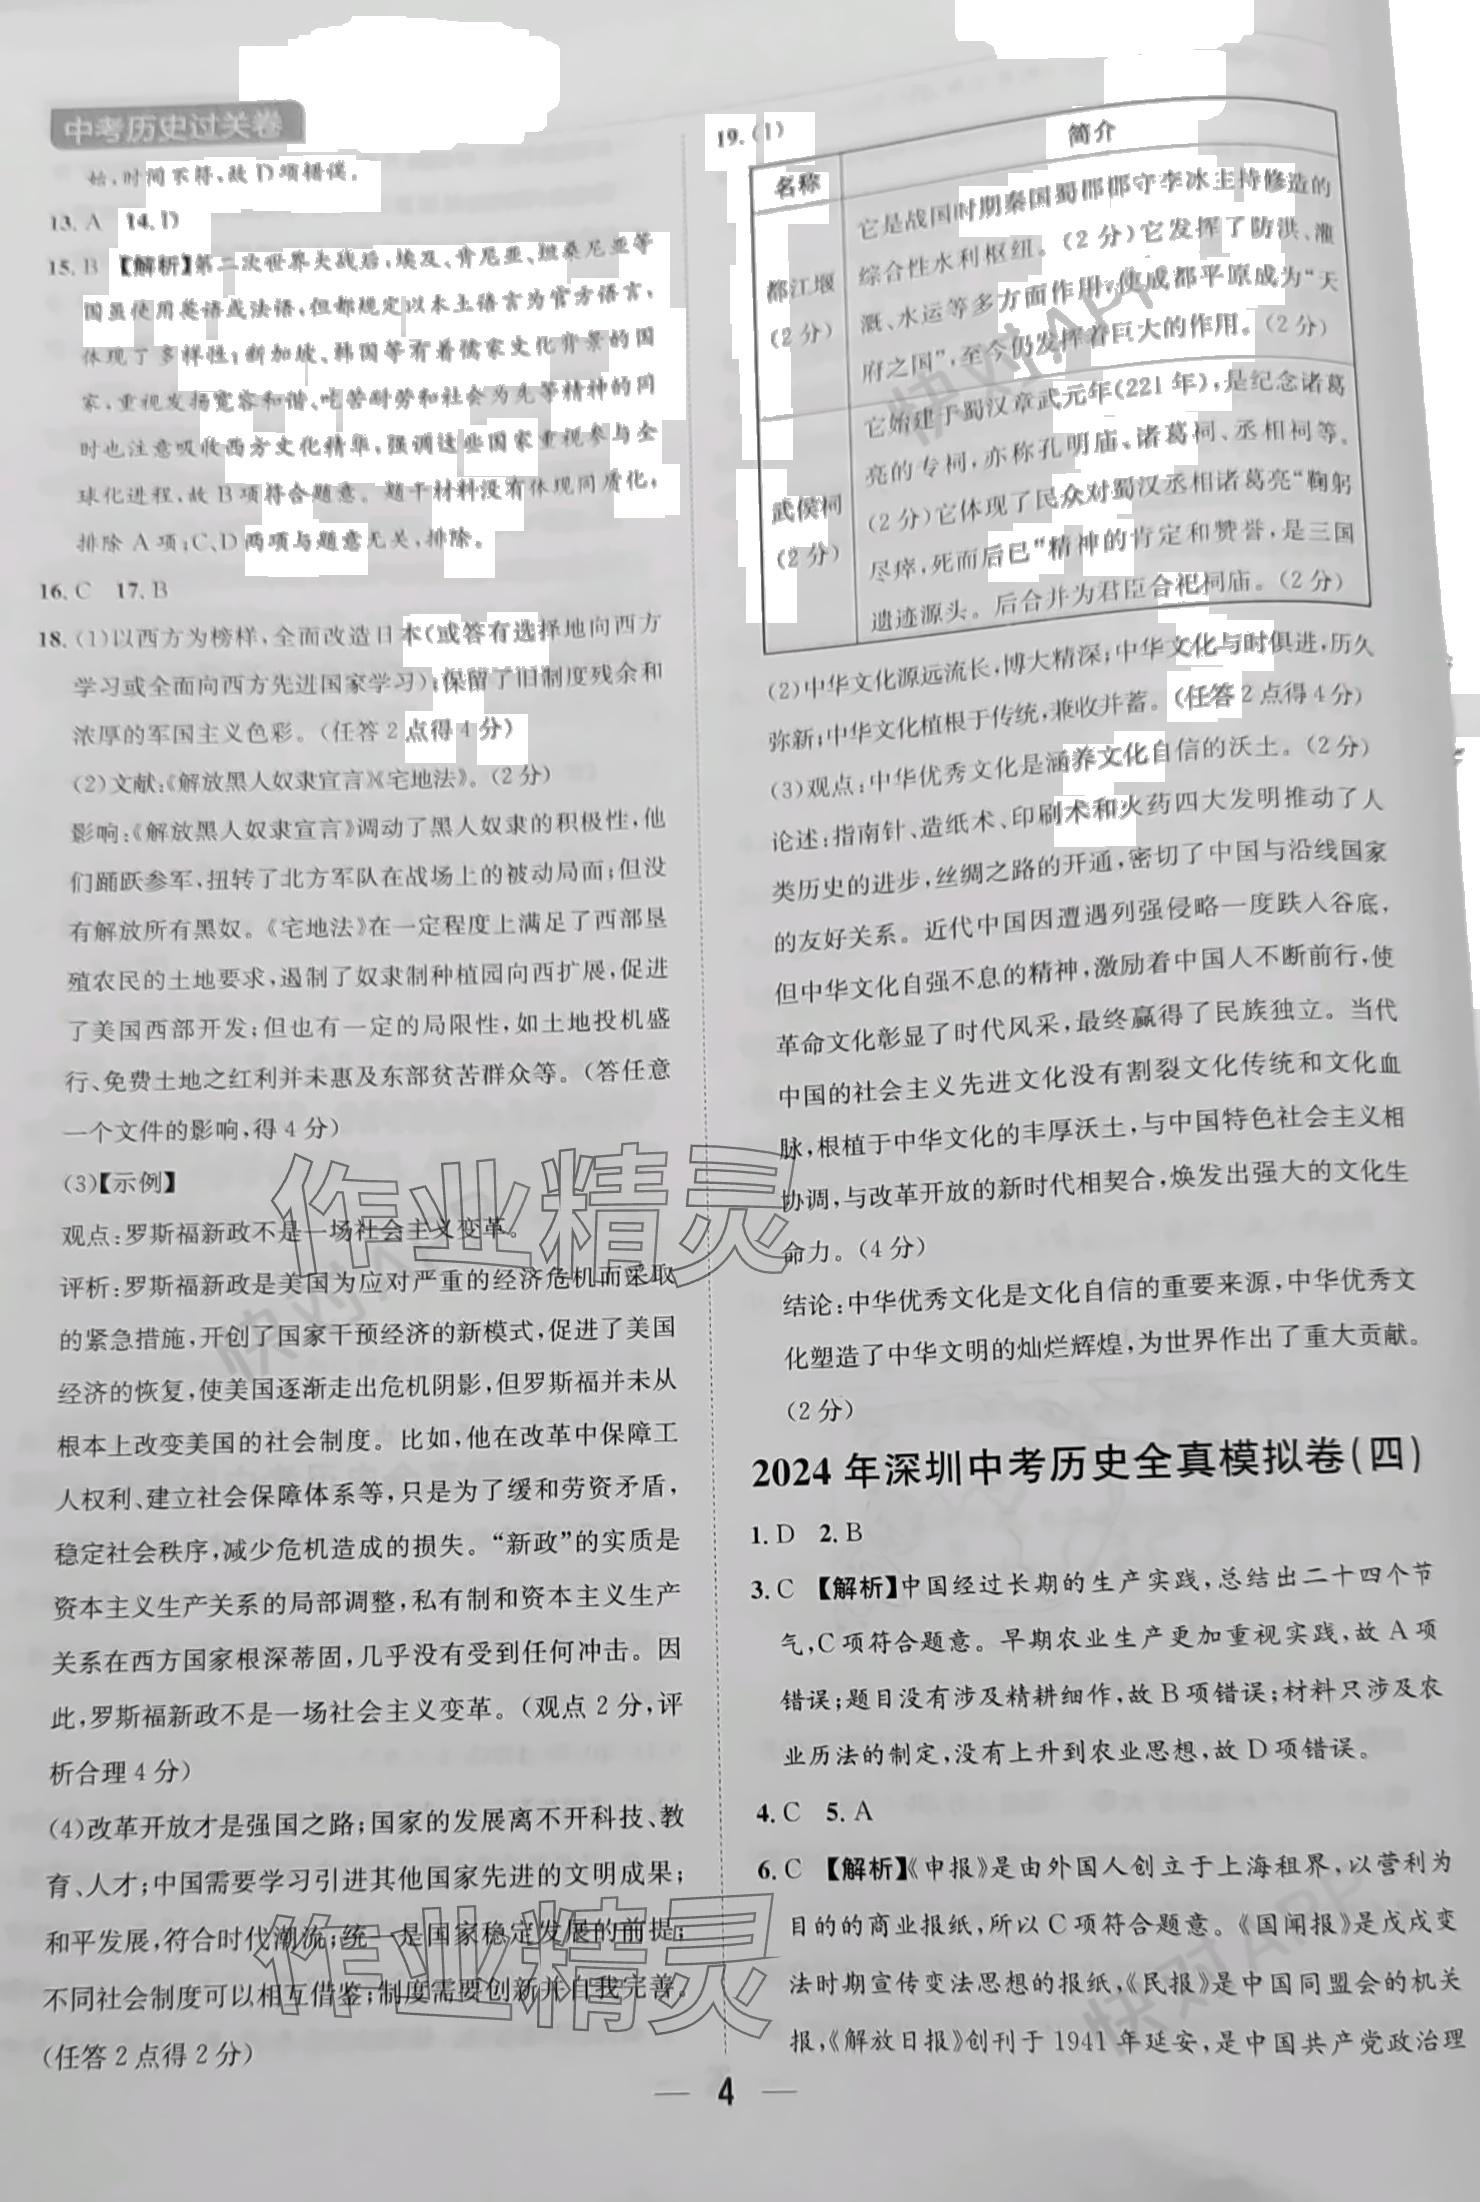 中考历史过关卷
始,时间不符,故D项错误。
13. A 14. D
15. B 【解析】第二次世界大战后,埃及、肯尼亚、坦桑尼亚等
国虽使用英语或法语,但都规定以本土语言为官方语言,
体现了多样性;新加坡、韩国等有着儒家文化背景的国
家,重视发扬宽容和谐、吃苦耐劳和社会为先等精神的同
时也注意吸收西方文化精华,强调这些国家重视参与全
球化进程,故B项符合题意。题干材料没有体现同质化,
排除A项;C、D两项与题意无关,排除。
16. C 17. B
18. (1)以西方为榜样,全面改造日本(或答有选择地向西方
学习或全面向西方先进国家学习);保留了旧制度残余和
浓厚的军国主义色彩。(任答2点得4分)
(2)文献:《解放黑人奴隶宣言》《宅地法》。(2分)
影响:《解放黑人奴隶宣言》调动了黑人奴隶的积极性,他
们踊跃参军,扭转了北方军队在战场上的被动局面;但没
有解放所有黑奴。《宅地法》在一定程度上满足了西部垦
殖农民的土地要求,遏制了奴隶制种植园向西扩展,促进
了美国西部开发;但也有一定的局限性,如土地投机盛
行、免费土地之红利并未惠及东部贫苦群众等。(答任意
一个文件的影响,得4分)
(3)【示例】
观点:罗斯福新政不是一场社会主义变革。
评析:罗斯福新政是美国为应对严重的经济危机而采取
的紧急措施,开创了国家干预经济的新模式,促进了美国
经济的恢复,使美国逐渐走出危机阴影,但罗斯福并未从
根本上改变美国的社会制度。比如,他在改革中保障工
人权利、建立社会保障体系等,只是为了缓和劳资矛盾,
稳定社会秩序,减少危机造成的损失。“新政”的实质是
资本主义生产关系的局部调整,私有制和资本主义生产
关系在西方国家根深蒂固,几乎没有受到任何冲击。因
此,罗斯福新政不是一场社会主义变革。(观点2分,评
析合理4分)
(4)改革开放才是强国之路;国家的发展离不开科技、教
育、人才;中国需要学习引进其他国家先进的文明成果;
和平发展,符合时代潮流;统一是国家稳定发展的前提;
不同社会制度可以相互借鉴;制度需要创新并自我完善。
(任答2点得2分)
19. (1)
名称 简介
都江堰
(2分)
它是战国时期秦国蜀郡郡守李冰主持修造的
综合性水利枢纽。(2分)它发挥了防洪、灌
溉、水运等多方面作用,使成都平原成为“天
府之国”,至今仍发挥着巨大的作用。(2分)
武侯祠
(2分)
它始建于蜀汉章武元年(221年),是纪念诸葛
亮的专祠,亦称孔明庙、诸葛祠、丞相祠等。
(2分)它体现了民众对蜀汉丞相诸葛亮“鞠躬
尽瘁,死而后已”精神的肯定和赞誉,是三国
遗迹源头。后合并为君臣合祀祠庙。(2分)
(2)中华文化源远流长,博大精深;中华文化与时俱进,历久
弥新;中华文化植根于传统,兼收并蓄。(任答2点得4分)
(3)观点:中华优秀文化是涵养文化自信的沃土。(2分)
论述:指南针、造纸术、印刷术和火药四大发明推动了人
类历史的进步,丝绸之路的开通,密切了中国与沿线国家
的友好关系。近代中国因遭遇列强侵略一度跌入谷底,
但中华文化自强不息的精神,激励着中国人不断前行,使
革命文化彰显了时代风采,最终赢得了民族独立。当代
中国的社会主义先进文化没有割裂文化传统和文化血
脉,根植于中华文化的丰厚沃土,与中国特色社会主义相
协调,与改革开放的新时代相契合,焕发出强大的文化生
命力。(4分)
结论:中华优秀文化是文化自信的重要来源,中华优秀文
化塑造了中华文明的灿烂辉煌,为世界作出了重大贡献。
(2分)
2024年深圳中考历史全真模拟卷(四)
1. D 2. B
3. C 【解析】中国经过长期的生产实践,总结出二十四个节
气,C项符合题意。早期农业生产更加重视实践,故A项
错误;题目没有涉及精耕细作,故B项错误;材料只涉及农
业历法的制定,没有上升到农业思想,故D项错误。
4. C 5. A
6. C 【解析】《申报》是由外国人创立于上海租界,以营利为
目的的商业报纸,所以C项符合题意。《国闻报》是戊戌变
法时期宣传变法思想的报纸,《民报》是中国同盟会的机关
报,《解放日报》创刊于1941年延安,是中国共产党政治理
4
作业精灵
作业精灵
快对APP
快对APP
快对APP